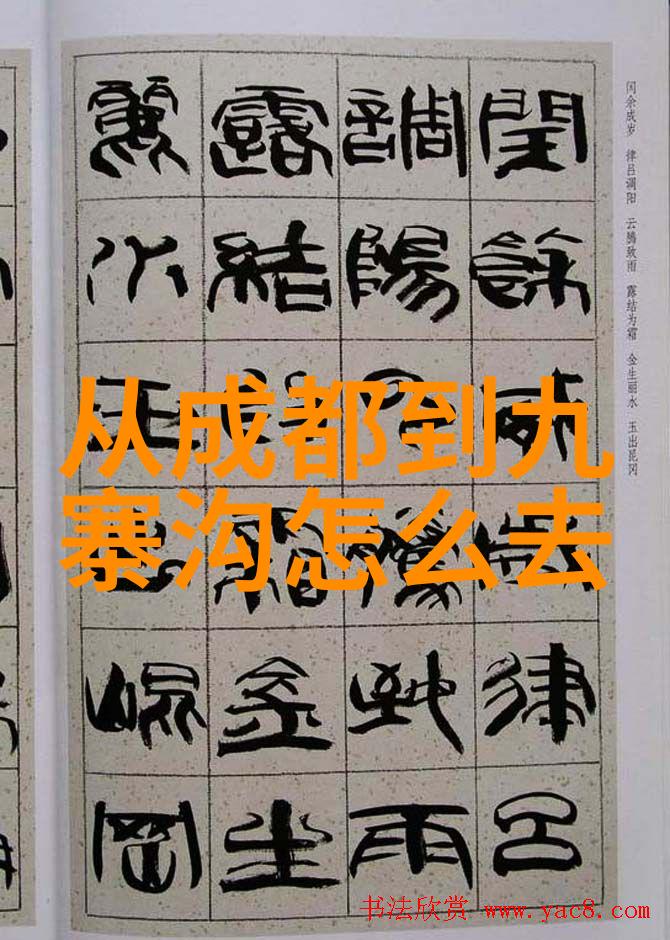 从成都到九
寨沟怎么去
閏餘歲律呂
調陽騰致雨
露結霜金生
麗水玉出崐岡
闰余成岁 律吕调阳 云腾致雨 露结为霜 金生丽水 玉出昆冈
书法欣赏 www.yac8.com